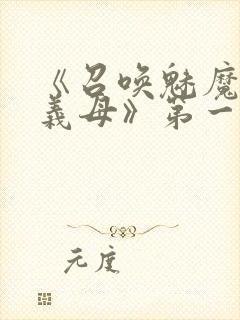 《召唤魅魔
義母》第一
元度